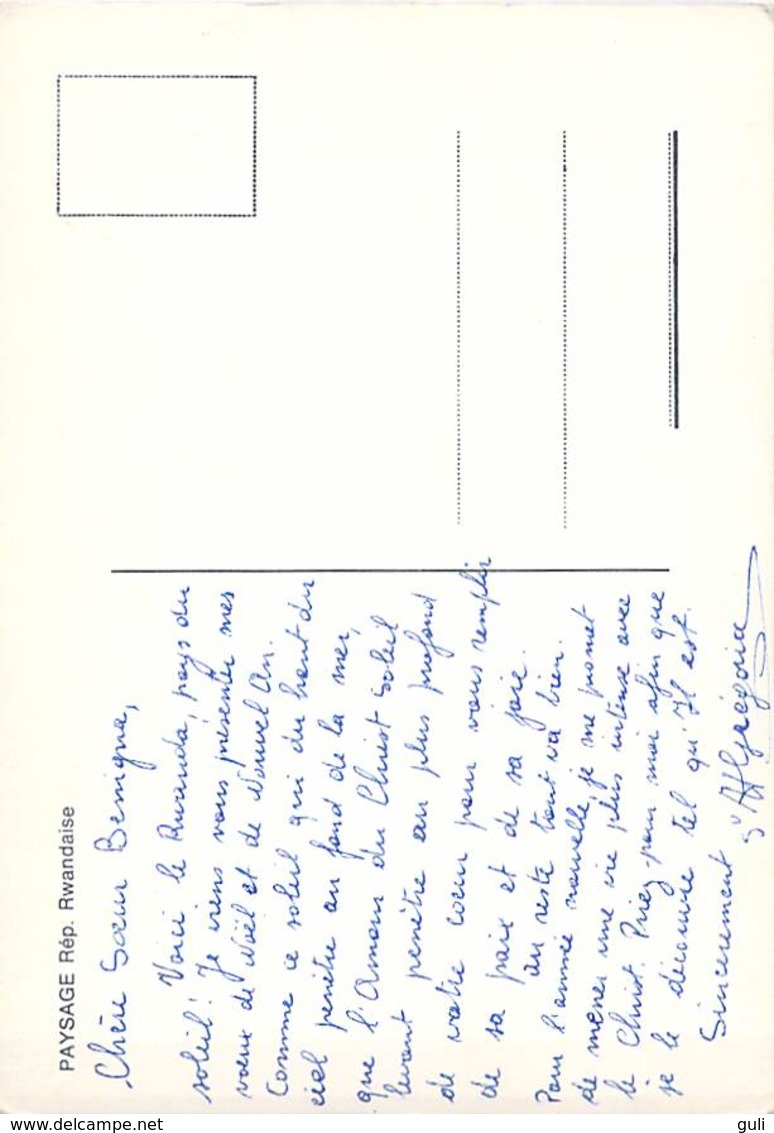 PAYSAGE Rép. Rwandaise
Chère Sœur Benigna,
Voici le Rwanda, pays du
soleil! Je viens vous présenter mes
vœux de Noël et de Nouvel An.
Comme ce soleil qui du haut du
ciel penètre au fond de la mer,
que l'Amour du Christ Soleil
levant penètre au plus profond
de votre cœur pour vous remplir
de sa paix et de sa joie.
Du reste tout va bien.
Pour l'année nouvelle, je me promet
de mener une vie plus intense avec
le Christ. Priez pour moi afin que
je le découvre tel qu'Il est.
Sincerement
delcampe.net
guli